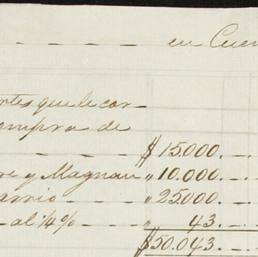 en Cuen
ntes que le cor-
ompra de
$ 15.000.
re y Magnan " 10.000.
arrio " 25.000.
al 1/4 % " 43.
$ 50.043.